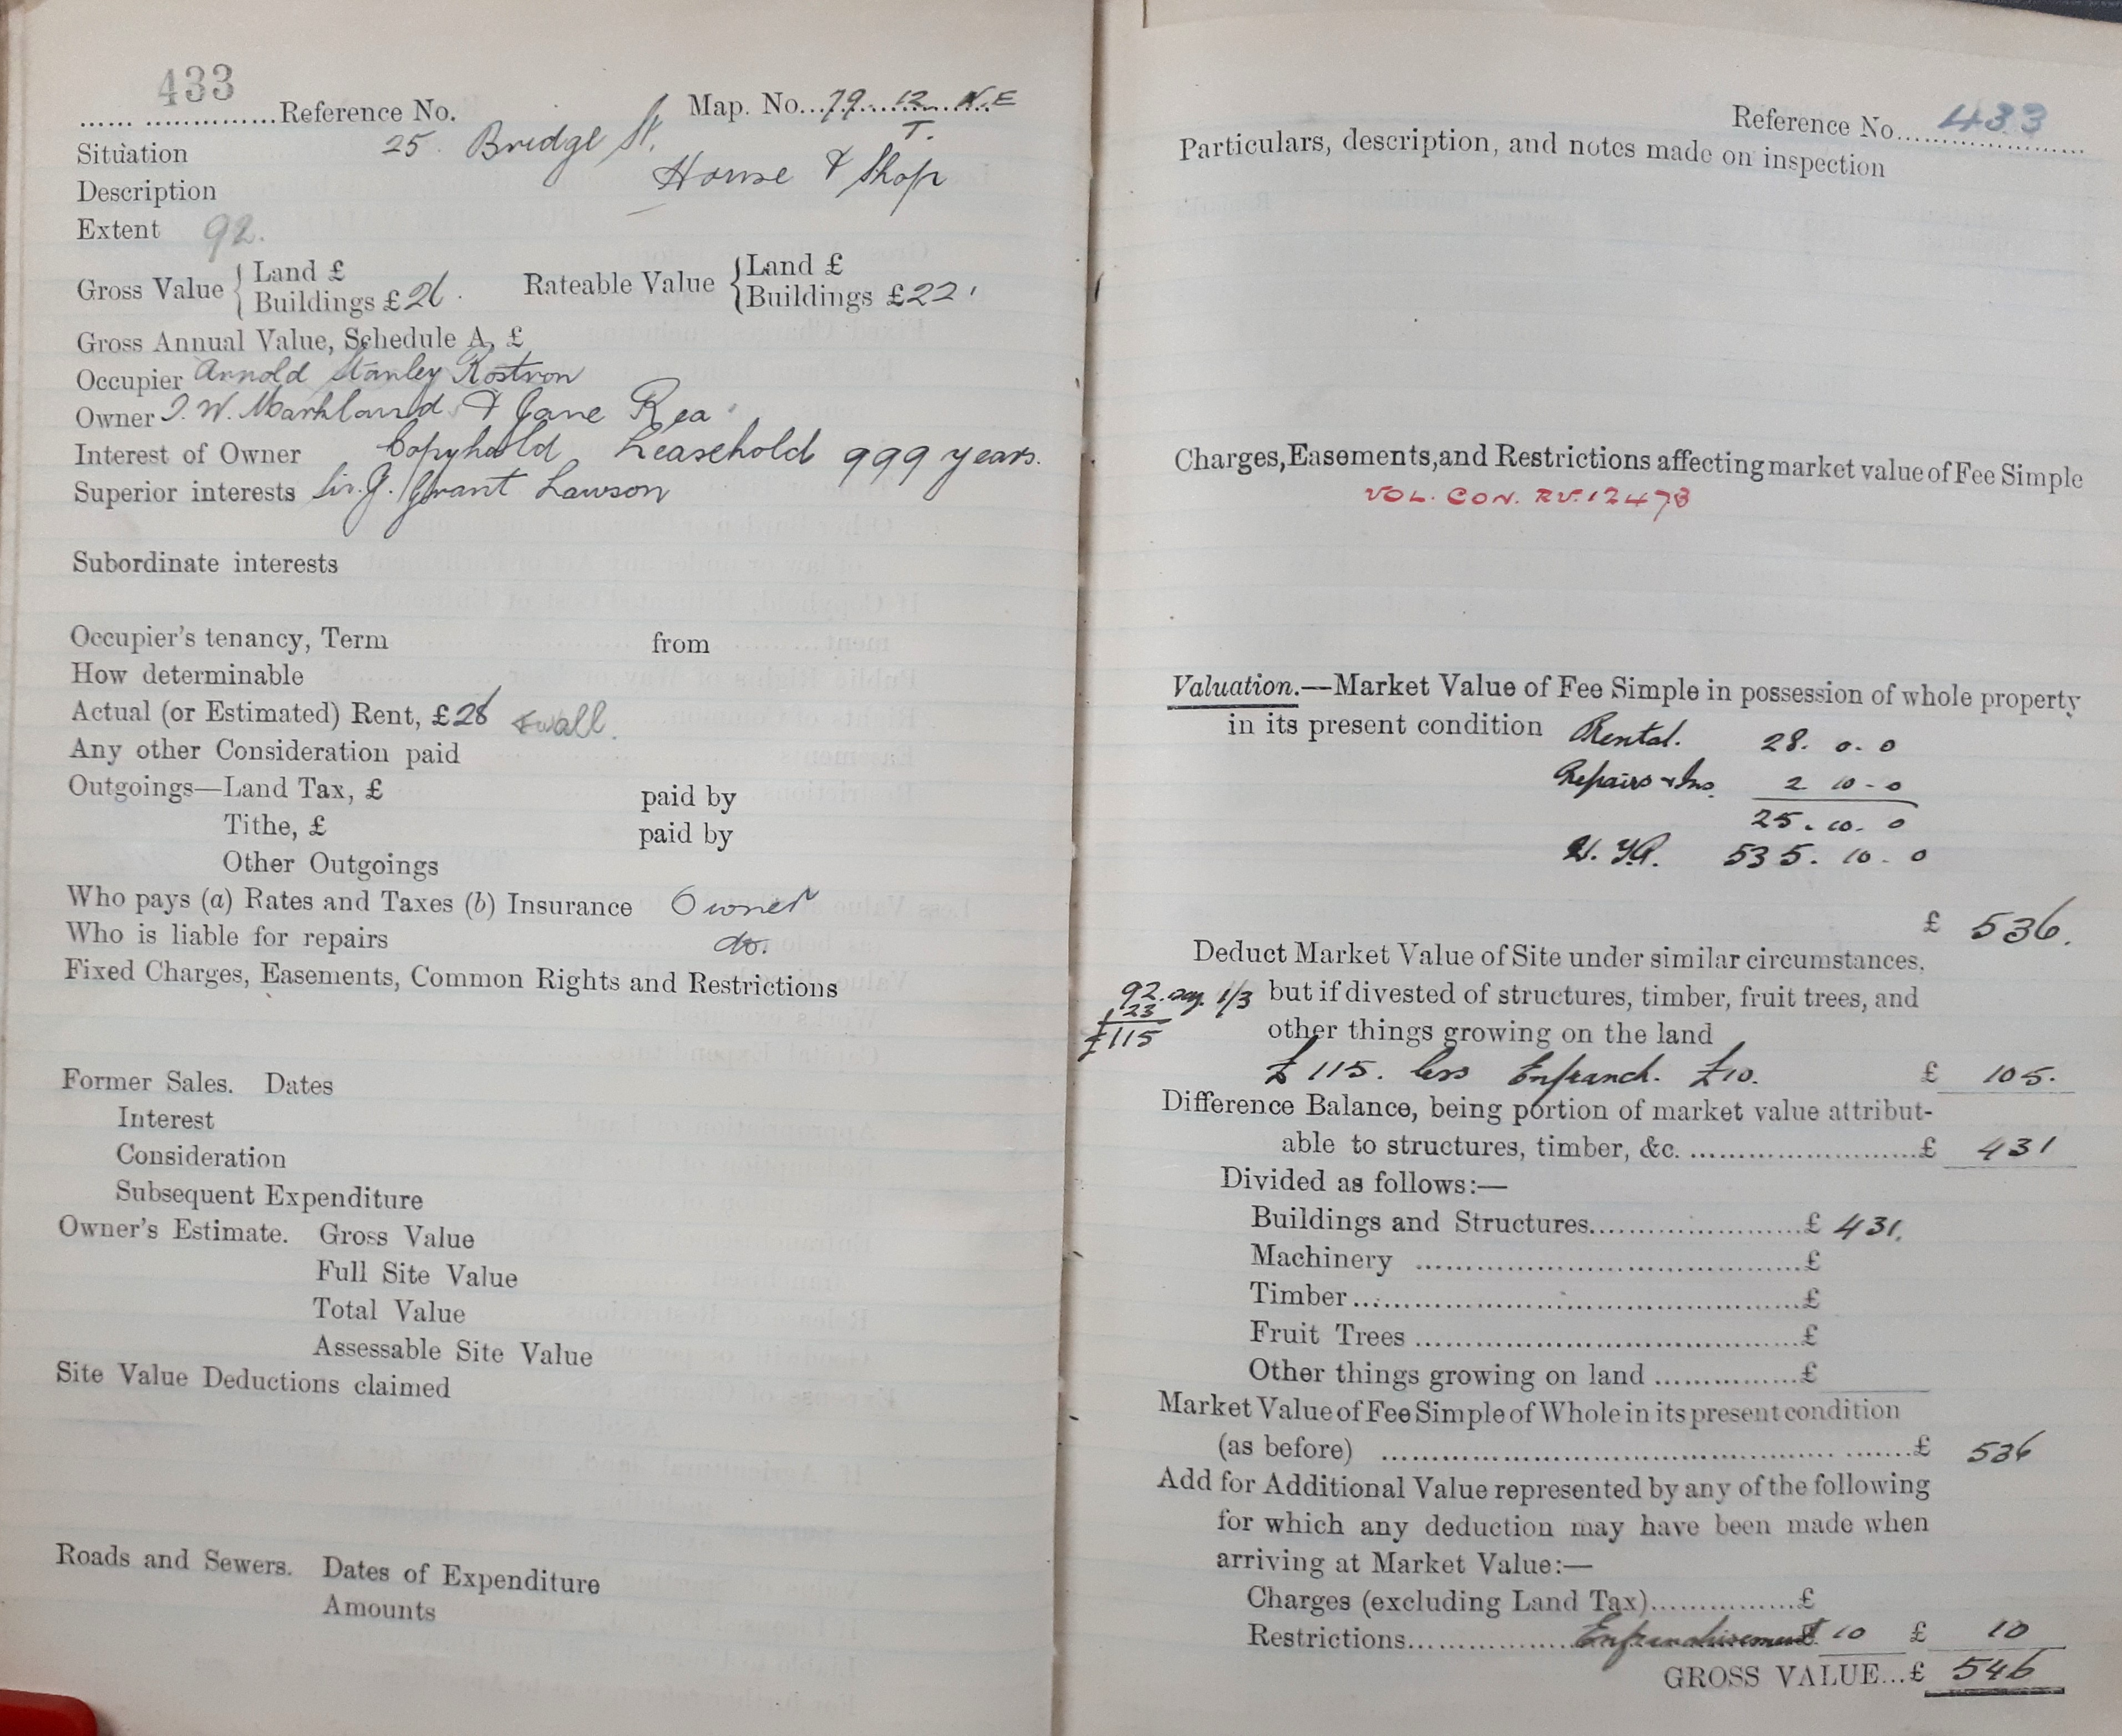 433
...... ..............Reference No. Map. No... 79. 12. N.E
T.
Situation 25. Bridge St.
Description House & Shop
Extent 92.
Gross Value { Land £
Buildings £26. Rateable Value { Land £
Buildings £22.
Gross Annual Value, Schedule A, £
Occupier Arnold Stanley Rostron
Owner J. W. Markland & Jane Rea
Interest of Owner Copyhold Leasehold 999 years.
Superior interests Sir. J. Grant Lawson
Subordinate interests
Occupier's tenancy, Term from
How determinable
Actual (or Estimated) Rent, £28
Any other Consideration paid
Outgoings—Land Tax, £ paid by
Tithe, £ paid by
Other Outgoings
Who pays (a) Rates and Taxes (b) Insurance Owner
Who is liable for repairs do.
Fixed Charges, Easements, Common Rights and Restrictions
Former Sales. Dates
Interest
Consideration
Subsequent Expenditure
Owner's Estimate. Gross Value
Full Site Value
Total Value
Assessable Site Value
Site Value Deductions claimed
Roads and Sewers. Dates of Expenditure
Amounts
Reference No.... 433
Particulars, description, and notes made on inspection
Charges, Easements, and Restrictions affecting market value of Fee Simple
VOL. CON. RV. 12478
Valuation.—Market Value of Fee Simple in possession of whole property
in its present condition Rental. 28. 0. 0
Repairs & Ins. 2 10 - 0
25. 10. 0
21. Y.P. 535. 10 - 0
£ 536.
Deduct Market Value of Site under similar circumstances,
92. say. 1/3 but if divested of structures, timber, fruit trees, and
23
£115 other things growing on the land
£115. less Enfranch. £10. £ 105.
Difference Balance, being portion of market value attribut-
able to structures, timber, &c. ........................£ 431
Divided as follows:—
Buildings and Structures........................£ 431.
Machinery ........................................£
Timber................................................£
Fruit Trees ..........................................£
Other things growing on land ...............£
Market Value of Fee Simple of Whole in its present condition
(as before) ................................................£ 536
Add for Additional Value represented by any of the following
for which any deduction may have been made when
arriving at Market Value:—
Charges (excluding Land Tax)...............£
Restrictions.................Enfranchisement 10 £ 10
GROSS VALUE...£ 546